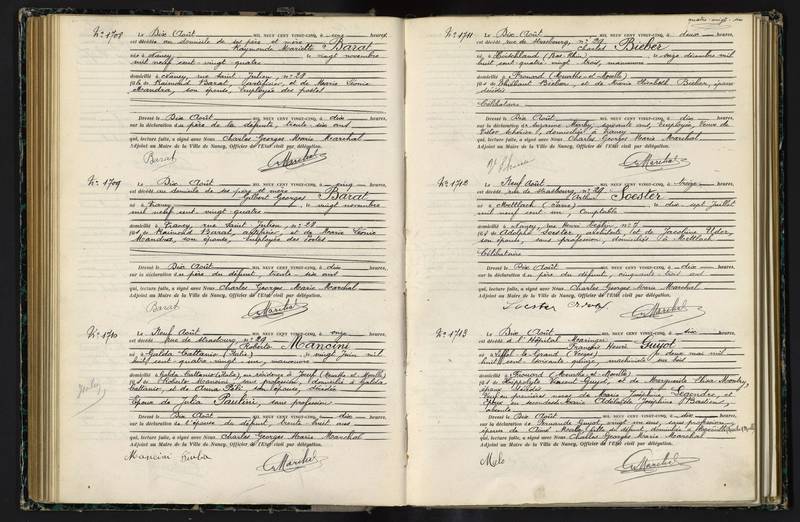 N° 1708
Le Dix Août MIL NEUF CENT VINGT-CINQ, à cinq heures,
est décédée au domicile de ses père et mère
Raymonde Mariette Barat
née à Nancy le vingt novembre
mil neuf cent vingt quatre
domiciliée à Nancy, rue Saint Julien, n° 28
fille de Raimond Barat, et de Marie
son épouse, employée des postes
Dressé le Dix Août MIL NEUF CENT VINGT-CINQ, à dix heures,
sur la déclaration du père de la défunte, trente six ans
qui, lecture faite, a signé avec Nous Charles Georges Marie Marchal
Adjoint au Maire de la Ville de Nancy, Officier de l'Etat civil par délégation.
Barat
N° 1709
Le Dix Août MIL NEUF CENT VINGT-CINQ, à heures,
est décédé au domicile de ses père et mère
Gilbert Georges Barat
né à Nancy le vingt novembre
mil neuf cent vingt quatre
domicilié à Nancy, rue Saint Julien, n° 28
fils de Raimond Barat, et de Marie
son épouse, employée des Postes
Dressé le Dix Août MIL NEUF CENT VINGT-CINQ, à dix heures,
sur la déclaration du père du défunt, trente six ans
qui, lecture faite, a signé avec Nous Charles Georges Marie Marchal
Adjoint au Maire de la Ville de Nancy, Officier de l'Etat civil par délégation.
Barat
N° 1710
Le Neuf Août MIL NEUF CENT VINGT-CINQ, à onze heures,
est décédé rue de Strasbourg, n° 29
Roberto Mancini
né à Gualda Cattanio (Italie) le vingt Juin mil
huit cent quatre vingt six, manoeuvre
domicilié à Gualda Cattanio (Italie), en résidence à Joeuf (Meurthe et Moselle)
fils de Roberto Mancini, sans profession, domicilié à Gualda
Cattanio, et de son épouse, décédée
Epoux de Julia Paulini, sans profession
Dressé le Dix Août MIL NEUF CENT VINGT-CINQ, à dix heures,
sur la déclaration de l'épouse du défunt, trente huit ans
qui, lecture faite, a signé avec Nous Charles Georges Marie Marchal
Adjoint au Maire de la Ville de Nancy, Officier de l'Etat civil par délégation.
Mancini
quatre-vingt-six
N° 1711
Le Dix Août MIL NEUF CENT VINGT-CINQ, à deux heures,
est décédé rue de Strasbourg, n° 29
Charles Bieber
né à (Bas-Rhin) le onze décembre mil
huit cent quatre vingt trois, manoeuvre
domicilié à Frouard (Meurthe et Moselle)
fils de Thiébaut Bieber, et de Marie Elisabeth Bieber, époux
décédés
Célibataire
Dressé le Dix Août MIL NEUF CENT VINGT-CINQ, à dix heures,
sur la déclaration de Suzanne soixante ans, employée, Veuve de
Victor domiciliée à Nancy
qui, lecture faite, a signé avec Nous Charles Georges Marie Marchal
Adjoint au Maire de la Ville de Nancy, Officier de l'Etat civil par délégation.
N° 1712
Le Neuf Août MIL NEUF CENT VINGT-CINQ, à treize heures,
est décédé rue de Strasbourg, n° 29
Arthur Soester
né à Mettlach (Sarre) le dix sept Juillet
mil neuf cent un, Comptable
domicilié à Nancy, rue Henri n° 7
fils de Adolphe Soester, architecte, et de Jacobine
son épouse, sans profession, domiciliés à Mettlach
Célibataire
Dressé le Dix Août MIL NEUF CENT VINGT-CINQ, à dix heures,
sur la déclaration du père du défunt, cinquante trois ans
qui, lecture faite, a signé avec Nous Charles Georges Marie Marchal
Adjoint au Maire de la Ville de Nancy, Officier de l'Etat civil par délégation.
Soester
N° 1713
Le Dix Août MIL NEUF CENT VINGT-CINQ, à dix heures,
est décédé à l'Hôpital Maringer
François Henri Guyot
né à Liffol le Grand (Vosges) le deux mai mil
huit cent soixante quinze, machiniste
domicilié à Frouard (Meurthe et Moselle)
fils de Hippolyte Vincent Guyot, et de Marguerite Elisa
époux décédés
Veuf en premières noces de Marie Joséphine Legendre, et
Epoux en secondes Marie Joséphine Bastien,
absente
Dressé le Dix Août MIL NEUF CENT VINGT-CINQ, à dix heures,
sur la déclaration de Fernande Guyot, vingt un ans, sans profession,
épouse de Aimé fille du défunt, domiciliée à
qui, lecture faite, a signé avec Nous Charles Georges Marie Marchal
Adjoint au Maire de la Ville de Nancy, Officier de l'Etat civil par délégation.